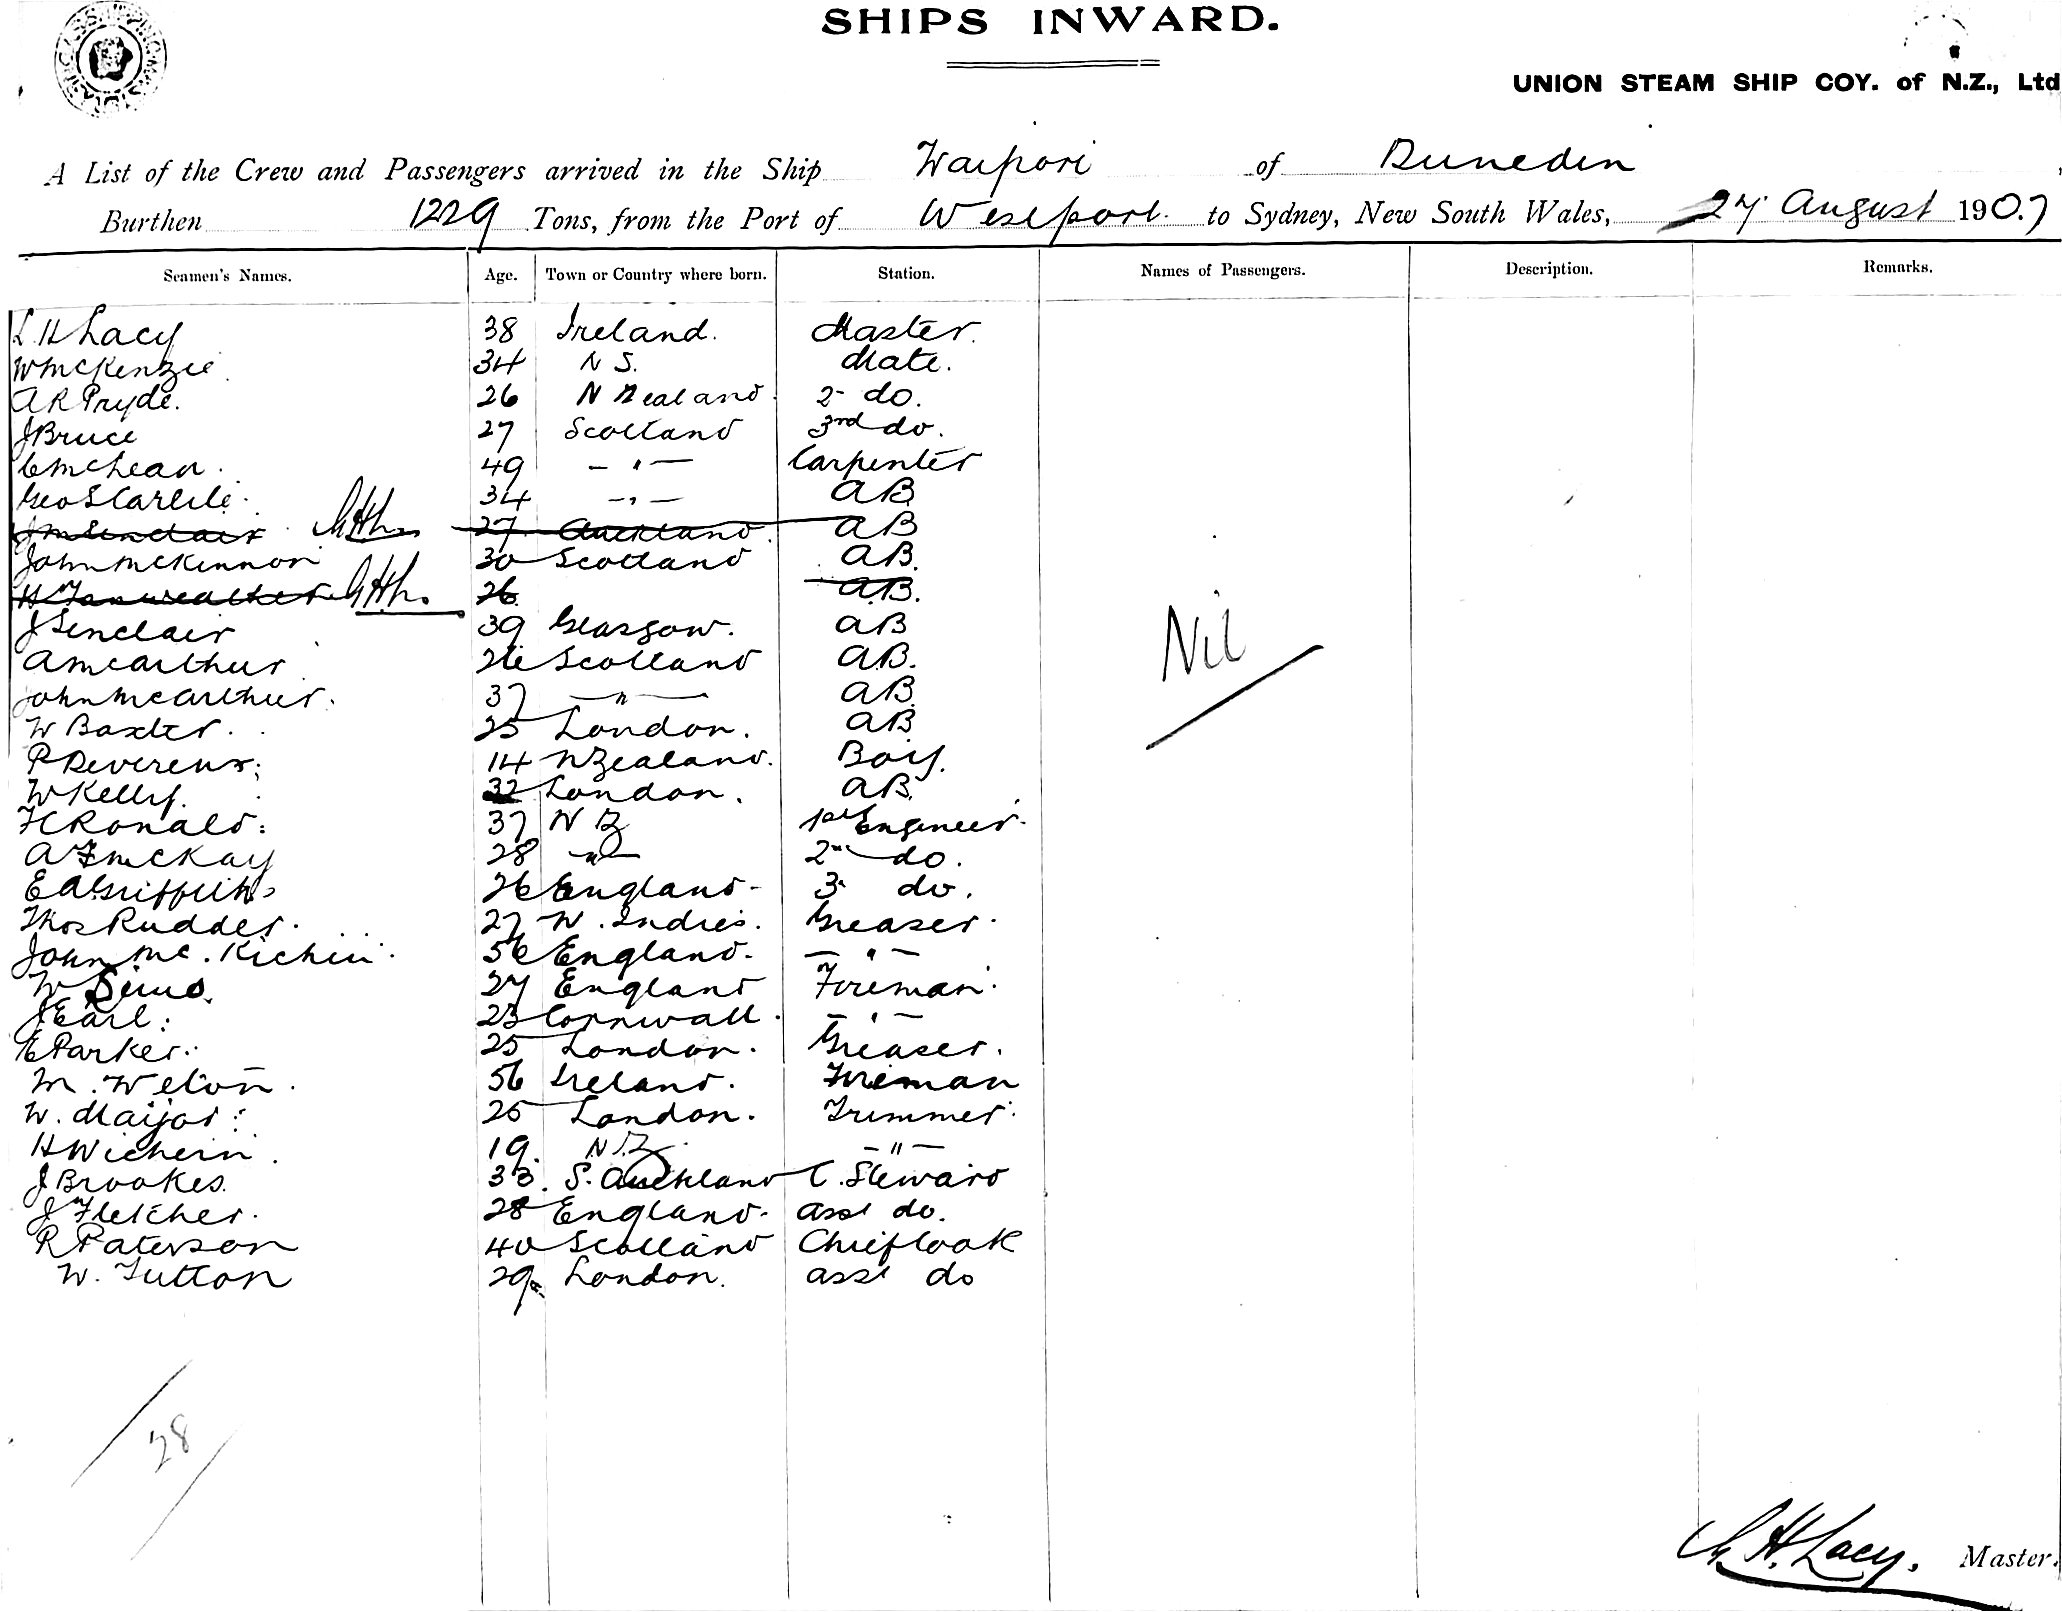 SHIPS INWARD.
UNION STEAM SHIP COY. of N.Z., Ltd
A List of the Crew and Passengers arrived in the Ship Waipori of Dunedin
Burthen 1229 Tons, from the Port of Westport. to Sydney, New South Wales, 27 August 1907
Seamen's Names. Age. Town or Country where born. Station. Names of Passengers. Description. Remarks.
H Lacy 38 Ireland. Master.
W McKenzie 34 N S. Mate.
A R Pryde. 26 N Zealand. 2 do.
J Bruce 27 Scotland 3rd do.
C McLean. 49 - " - Carpenter
Geo S Carlile. 34 - " - AB
J M Sinclair 27 Auckland. AB
John McKinnon 30 Scotland AB.
H Fairweather 26 A.B.
J Sinclair 39 Glasgow. AB
A McArthur 26 Scotland AB.
John McArthur. 37 - " - AB
W Baxter. 25 London. AB
P Devereux. 14 N Zealand. Boy.
W Kelly. 32 London. AB.
Nil
Ronald: 37 N Z 1st Engineer.
A F McKay 28 - " - 2 do.
E A Griffiths 26 England. 3 do.
Thos Rudder. 27 W. Indies. Greaser.
John Mc. 56 England. - " -
W 27 England Fireman.
J Earl: 23 Cornwall. - " -
E Parker. 25 London. Greaser.
M. Welton. 56 Ireland. Fireman
W. Maijor: 25 London. Trimmer.
H Wichern. 19. N.Z. - " -
J Brookes. 33. S. Auckland C. Steward
J Fletcher. 28 England. asst do.
R Paterson 40 Scotland Chief Cook
W. Tutton 29 London. asst do
28
H. Lacy. Master.